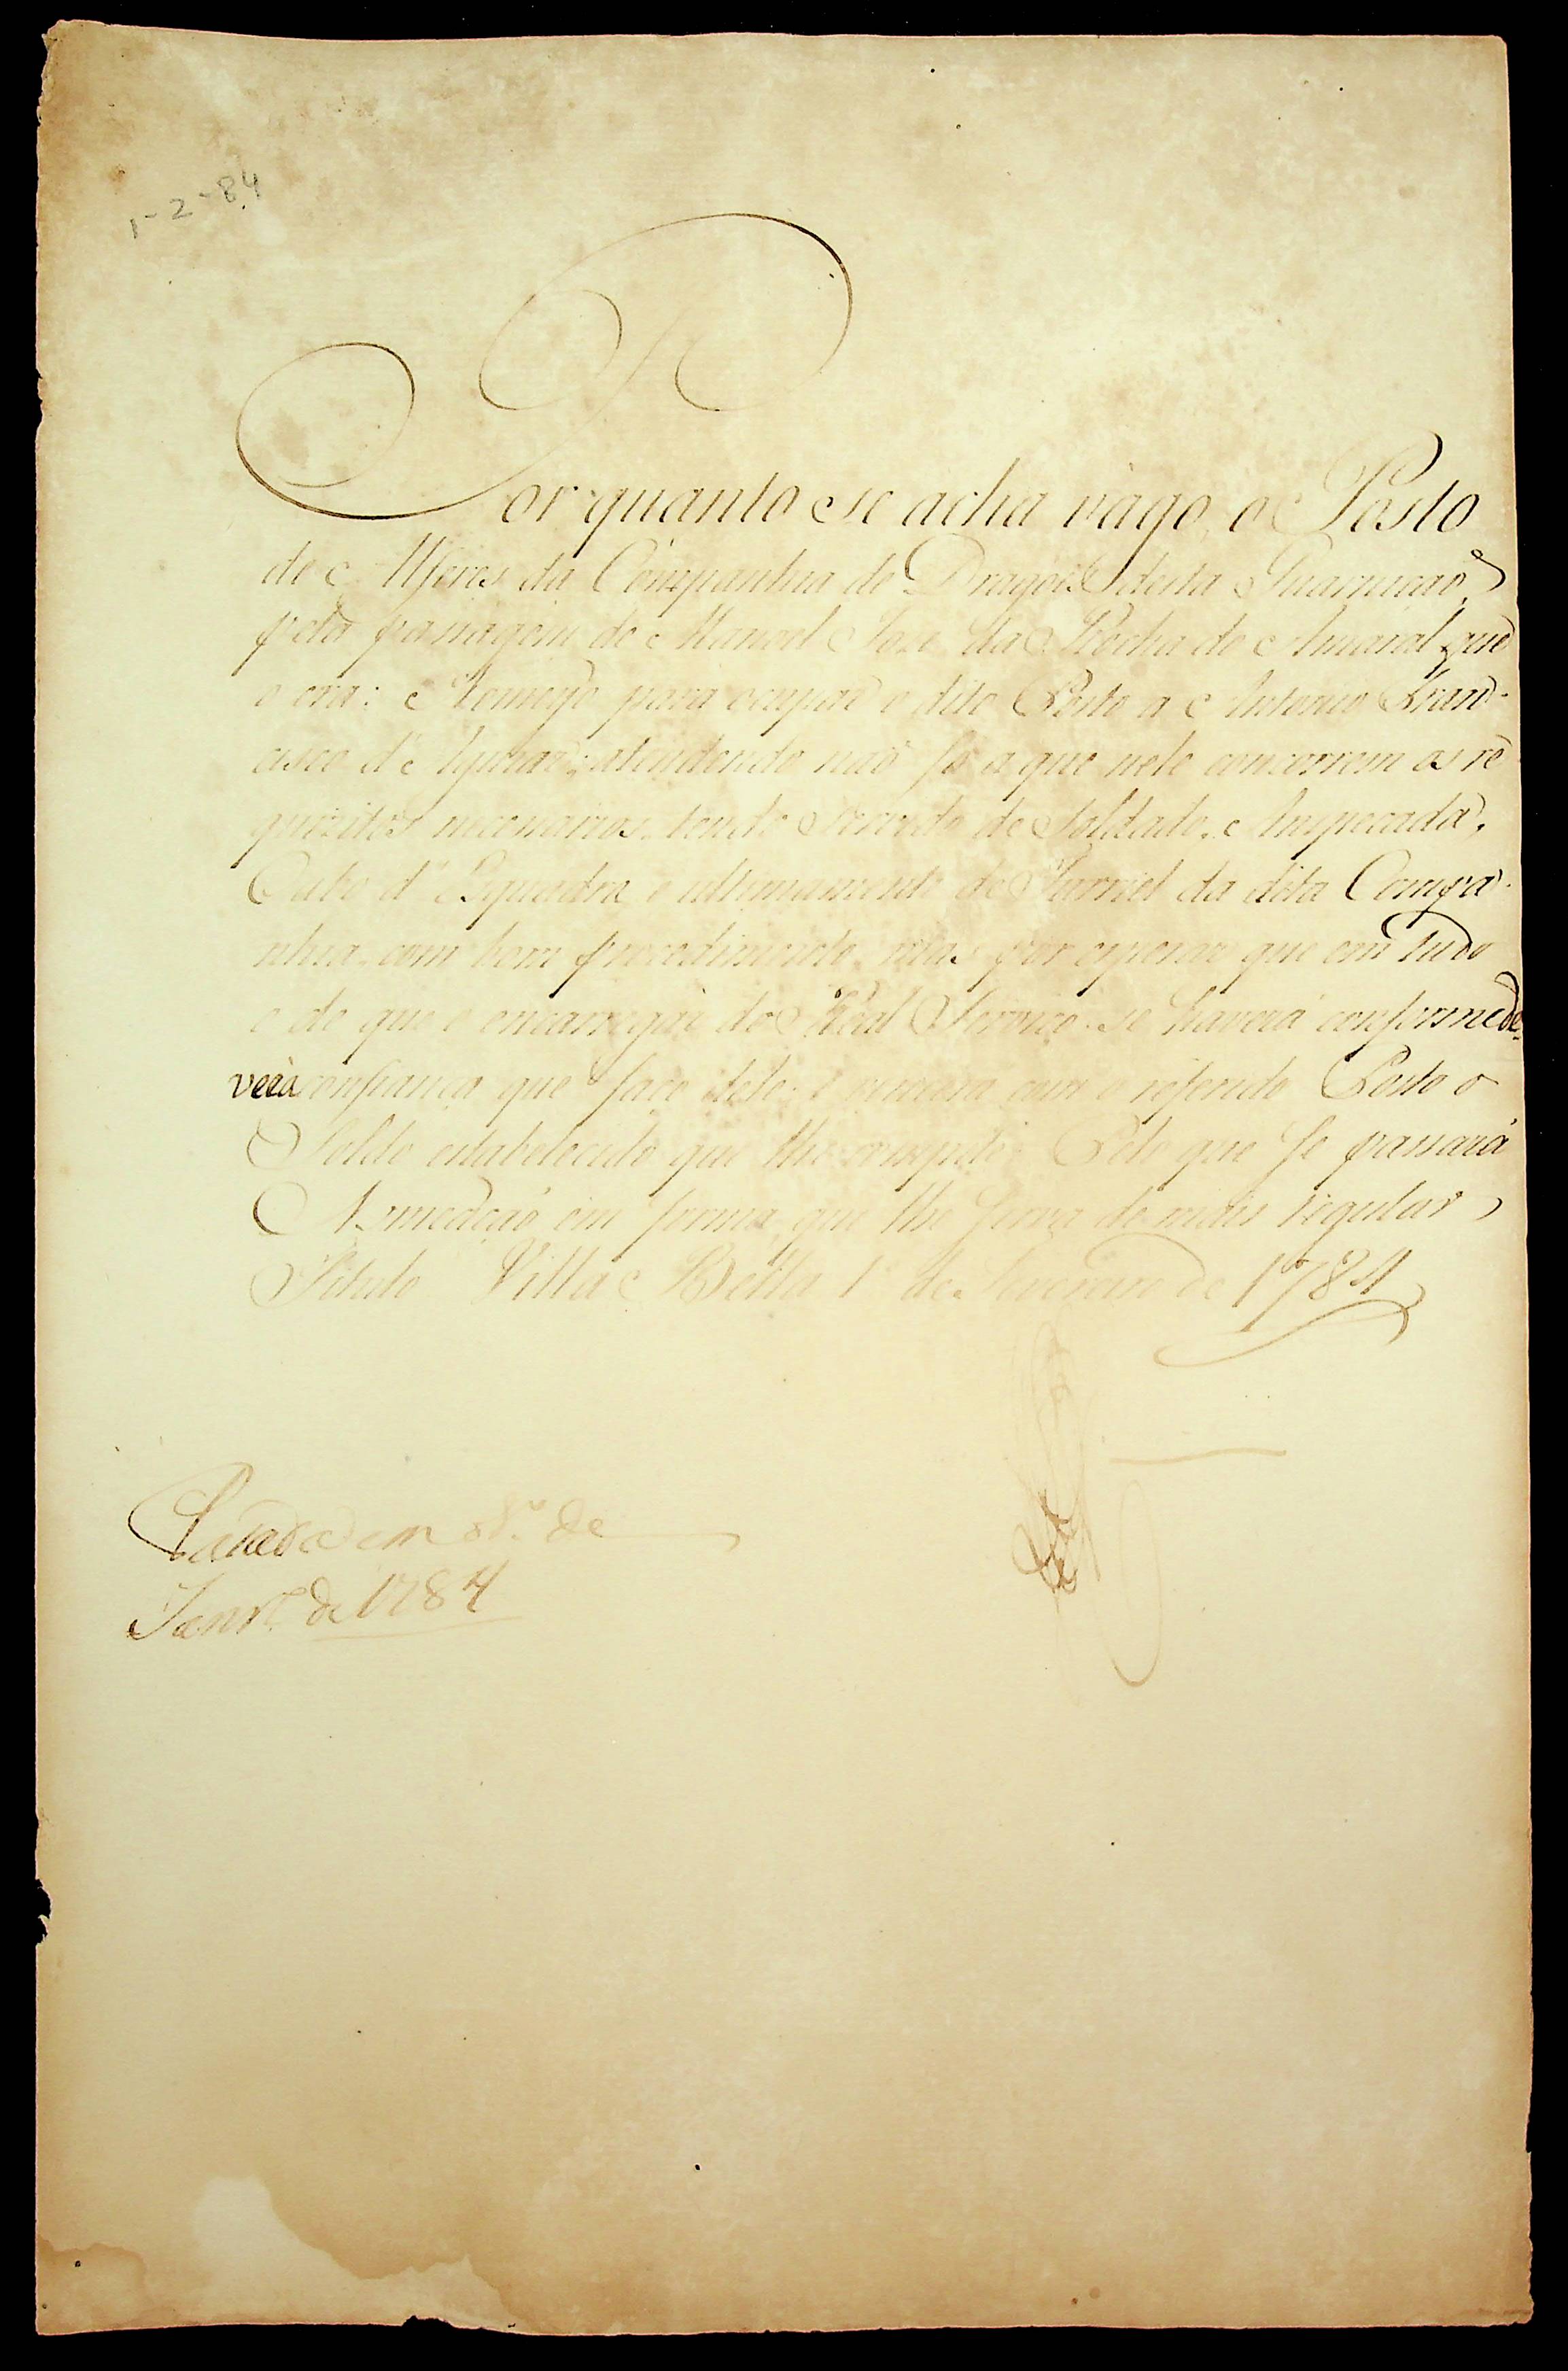 1-2-84
Por quanto se acha vàgo, o Posto
de Alferes da Companhia de Dragoẽs desta Guarnicaõ,
pela passagem de Manoel Joze da Rocha do Amaral que
o era: Nomeyo para ocupar o dito Posto a Antonio Fran-
cisco d'Aguiar; atendendo naõ só a que nele concorrem os re-
quizitos necessarios, tendo Servido de Soldado, Anspecada,
Cabo d'Esquadra e ultimamente de Furriel da dita Compa-
nhia, com bom procedimento, mas por esperar que em tudo
o de que o encarregar do Real Serviço, se haverá conforme de-
vera confiança que faço dele; e vencerá com o referido Posto o
Soldo estabelecido que lhe compete. Pelo que se passará
Nomeação em forma, que lhe Sirva de mais regular
Titulo Villa Bella 1º de Fevereiro de 1784
Passada em de
Janrº de 1784